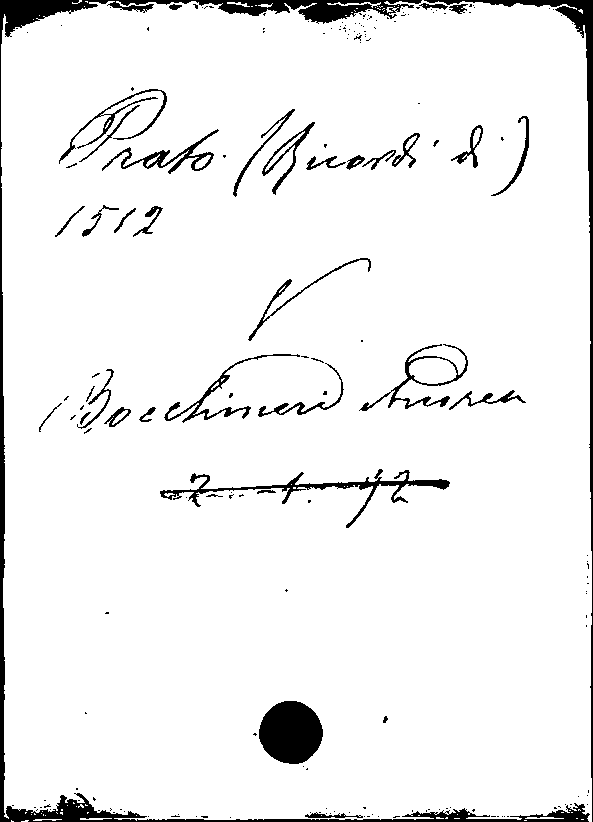 Prato. (Ricordi di)
1512
V
Bocchineri Andrea